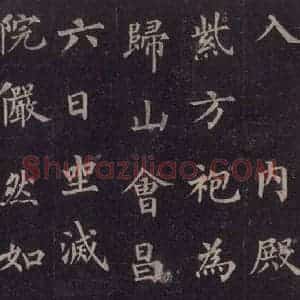 入內殿
紫方袍為
歸山會昌
六日坐滅
院儼然如
Shufaziliao.COM